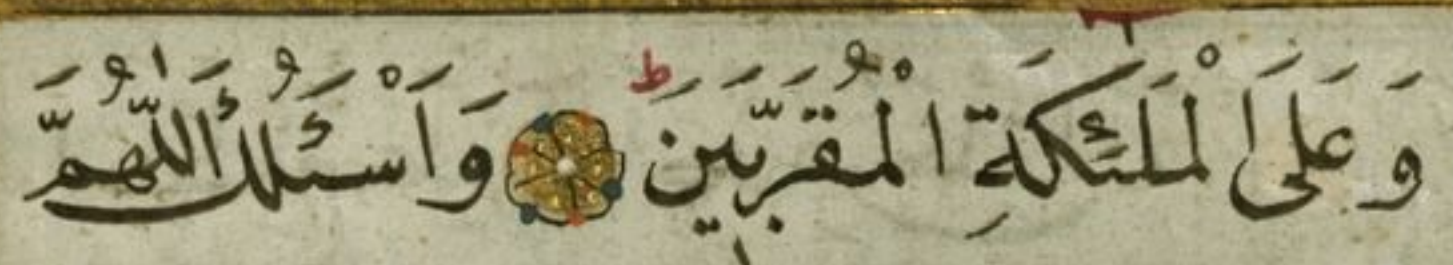 وَعَلَى الْمَلٰئِكَةِ الْمُقَرَّبِينَ ط وَاَسْئَلُكَ اللّٰهُمَّ